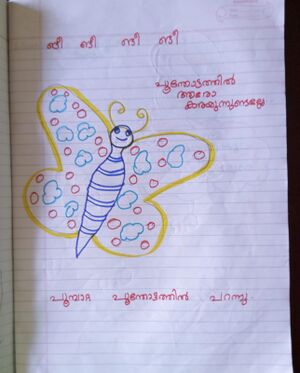 ങീ ങീ ങീ ങീ
പൂന്തോട്ടത്തിൽ
ആരോ
കരയുന്നുണ്ടല്ലോ
പൂമ്പാറ്റ പൂന്തോട്ടത്തിൽ പറന്നു